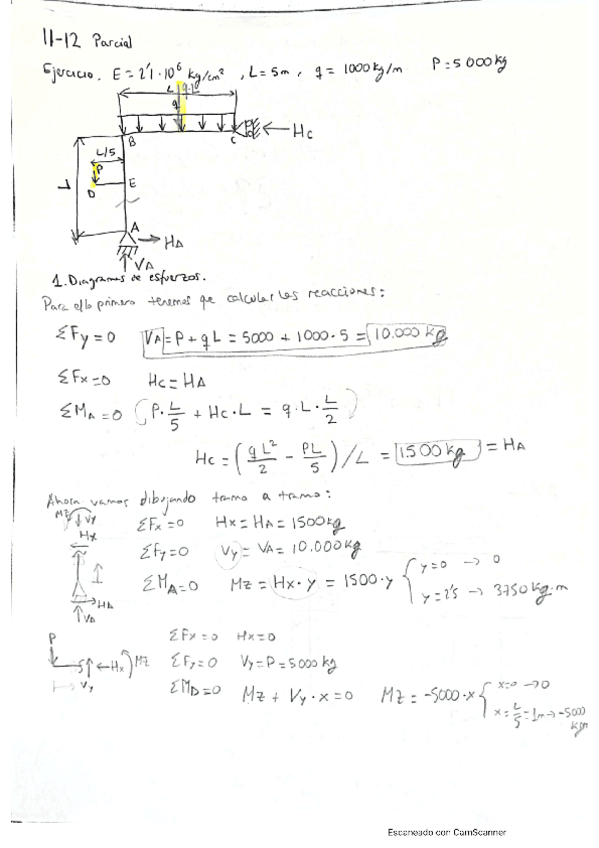 11-12 Parcial
Ejercicio. E = 2'1·10⁶ kg/cm², L = 5m, q = 1000 kg/m P = 5000 kg
L q·L
q
B C ← Hc
L/5
P
D E
L
A
HA
VA
1. Diagramas de esfuerzos.
Para ello primero tenemos que calcular las reacciones:
ΣFy = 0 VA = P + qL = 5000 + 1000·5 = 10.000 kg
ΣFx = 0 Hc = HA
ΣMA = 0 P·L/5 + Hc·L = q·L·L/2
Hc = (qL²/2 - PL/5)/L = 1500 kg = HA
Ahora vamos dibujando tramo a tramo:
Mz Vy
Hx
HA
VA
ΣFx = 0 Hx = HA = 1500 kg
ΣFy = 0 Vy = VA = 10.000 kg
ΣMA = 0 Mz = Hx·y = 1500·y { y = 0 → 0
y = 2'5 → 3750 kg·m
P
Hx Mz
Vy
ΣFx = 0 Hx = 0
ΣFy = 0 Vy = P = 5000 kg
ΣMD = 0 Mz + Vy·x = 0 Mz = -5000·x { x = 0 → 0
x = L/5 = 1m → -5000 kgm
Escaneado con CamScanner